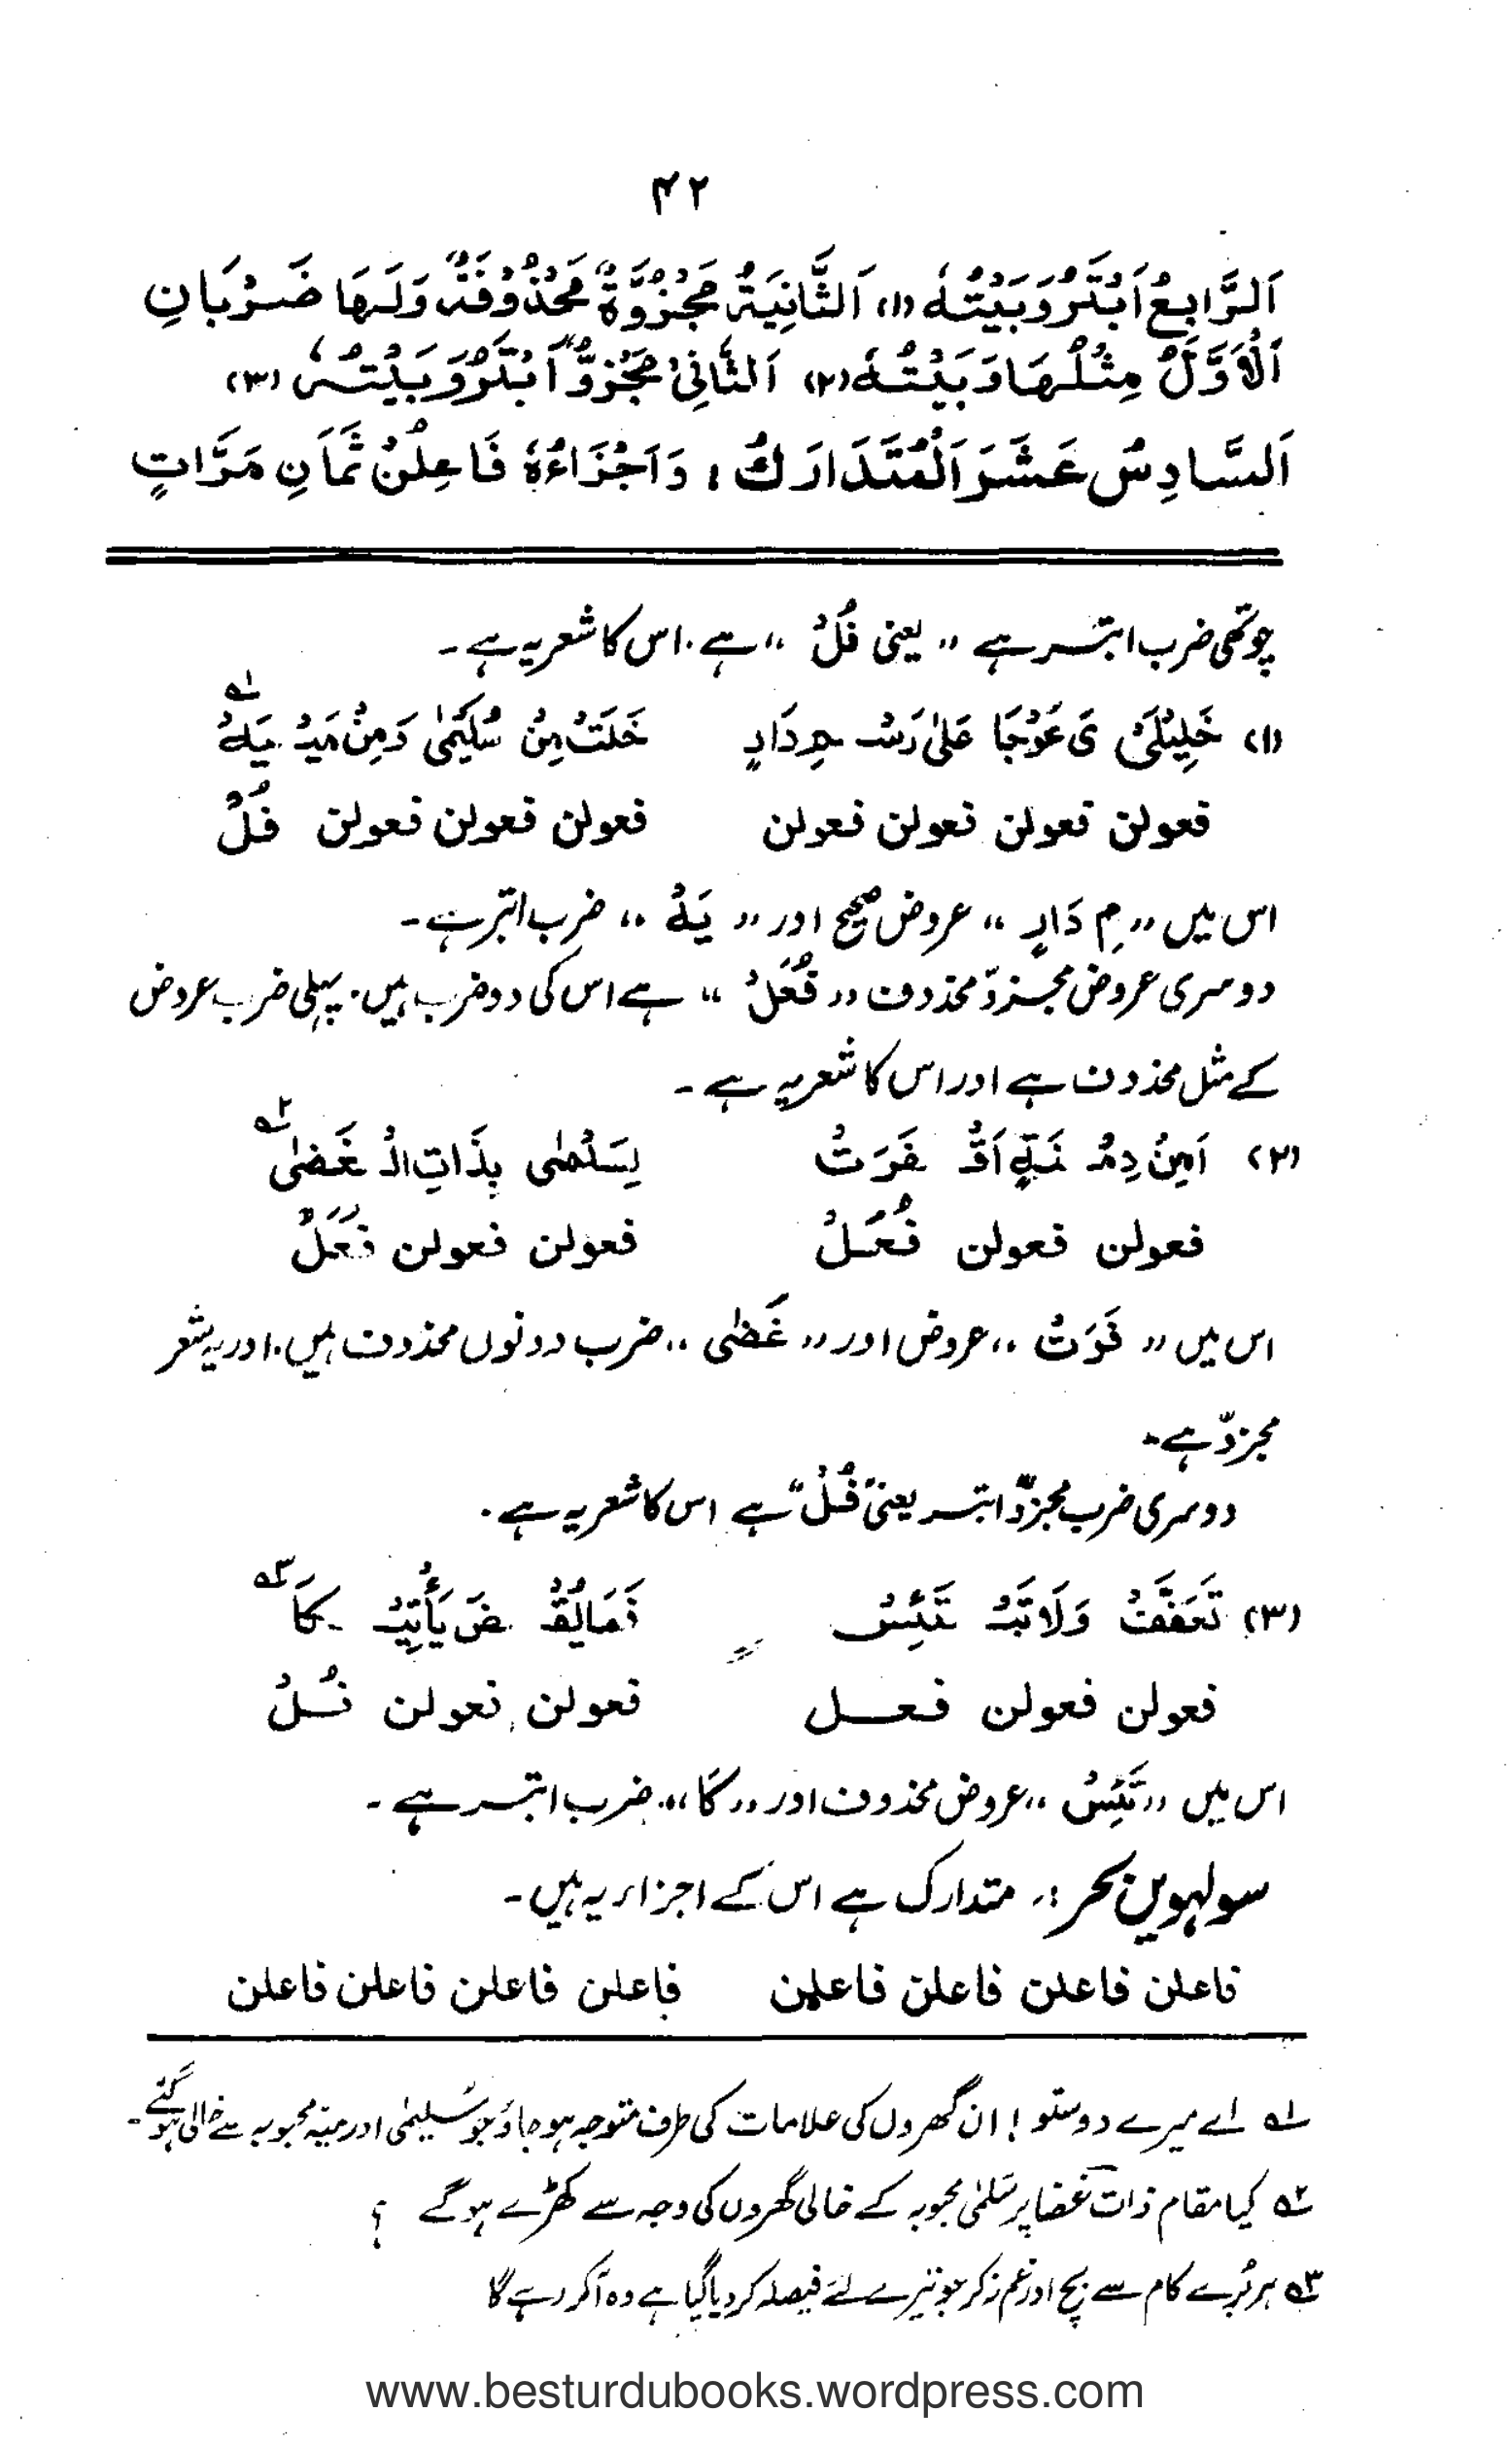 ۴۲
اَلرَّابِعُ اَبْتَرُ وَبَيْتُهٗ (۱) اَلثَّانِيَةُ مَجْزُوَّةٌ مَحْذُوْفَةٌ وَلَهَا ضَرْبَانِ
اَلْاَوَّلُ مِثْلُهَا وَبَيْتُهٗ (۲) اَلثَّانِیْ مَجْزُوٌّ اَبْتَرُ وَبَيْتُهٗ (۳)
اَلسَّادِسُ عَشَرَ اَلْمُتَدَارَكُ ؛ وَاَجْزَاءُهٗ فَاعِلُنْ ثَمَانِ مَرَّاتٍ
چوتھی ضرب ابتر ہے ،، یعنی فُلْ ،، ہے . اس کا شعر یہ ہے ۔
(۱) خَلِيْلَیْ یَ عَوْجَا عَلٰی رَسْ مِ دَارٍ خَلَتْ مِنْ سُلَيْمٰی وَمِنْ مَیْ يَهْ ۱؎
فعولن فعولن فعولن فعولن فعولن فعولن فعولن فُلْ
اس میں ،، مِ دَارٍ ،، عروض صحیح اور ،، یَهْ ،، ضرب ابتر ہے ۔
دوسری عروض مجزوّ محذوف ،، فُعَلْ ،، ہے اس کی دو ضرب ہیں . پہلی ضرب عروض
کے مثل محذوف ہے اور اس کا شعر یہ ہے ۔
(۲) اَمِنْ دِمْ نَةٍ اَقْ فَرَتْ لِسَلْمٰی بِذَاتِ الْ غَضٰی ۲؎
فعولن فعولن فُعَلْ فعولن فعولن فَعَلْ
اس میں ،، فَرَتْ ،، عروض اور ،، غَضٰی ،، ضرب دونوں محذوف ہیں . اور یہ شعر
مجزوّ ہے ۔
دوسری ضرب مجزوّ ابتر یعنی ”فُلْ“ ہے اس کا شعر یہ ہے .
(۳) تَعَفَّفْ وَلَا تَبْ تَئِسْ فَمَا يُقْ ضَ يَأْتِيْ كَا ۳؎
فعولن فعولن فعل فعولن فعولن فُلْ
اس میں ،، تَئِسْ ،، عروض محذوف اور ،، کَا ،، ضرب ابتر ہے ۔
سولہویں بحر :۔ متدارک ہے اس کے اجزاء یہ ہیں ۔
فاعلن فاعلن فاعلن فاعلن فاعلن فاعلن فاعلن فاعلن
۱؎ اے میرے دوستو ! ان گھروں کی علامات کی طرف متوجہ ہو جاؤ جو سُلیمٰی اور میّہ محبوبہ سے خالی ہو گئے ۔
۲؎ کیا مقام ذات غضا پر سَلمٰی محبوبہ کے خالی گھروں کی وجہ سے کھڑے ہو گے ؟
۳؎ ہر بُرے کام سے بچ اور غم نہ کر جو تیرے لئے فیصلہ کر دیا گیا ہے وہ آ کر رہے گا
www.besturdubooks.wordpress.com